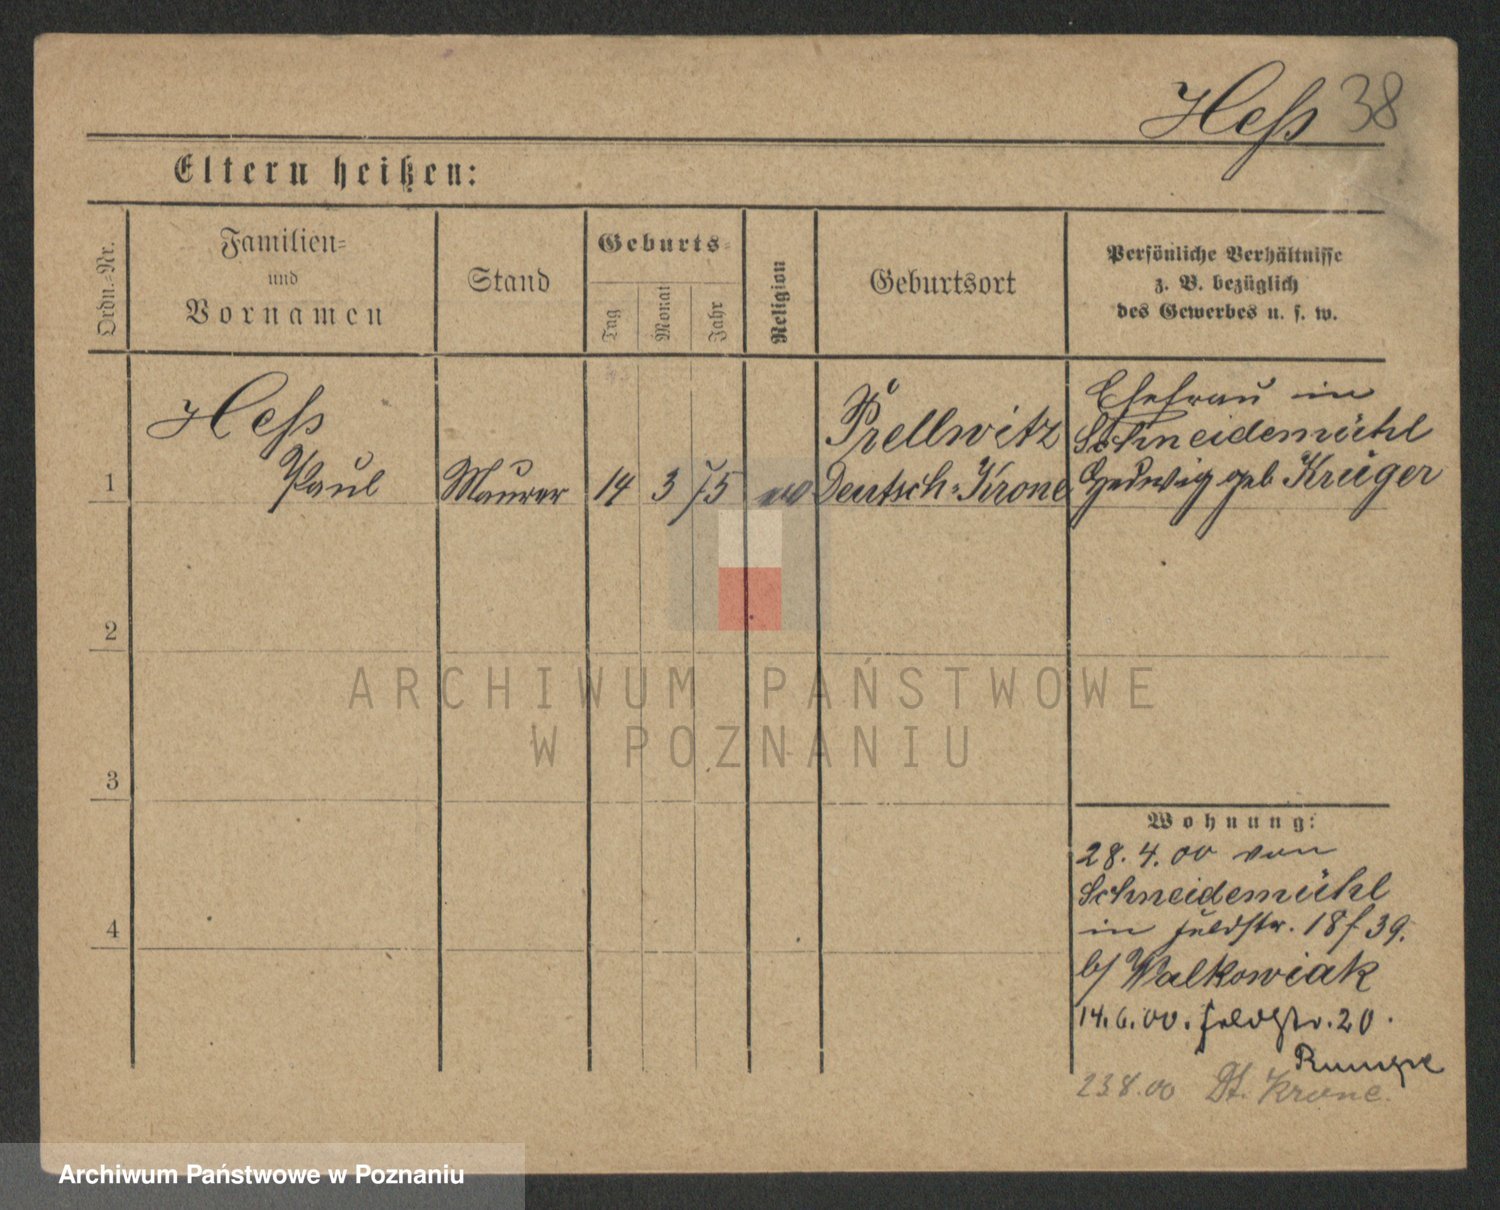 Heß 38
Eltern heißen:
Ordn.-Nr.
Familien-
und
Vornamen
Stand
Geburts-
Tag
Monat
Jahr
Religion
Geburtsort
Persönliche Verhältnisse
z. B. bezüglich
des Gewerbes u. s. w.
1
Heß
Paul
Maurer
14
3
75
Prellwitz
Deutsch-Krone
Ehefrau in
Schneidemühl
Hedwig geb Krüger
2
3
4
Wohnung:
28.4.00 von
Schneidemühl
in Feldstr. 18 f 39.
b/ Walkowiak
14.6.00. Feldstr. 20.
Runge
23 8.00 Dt. Krone.
ARCHIWUM PAŃSTWOWE
W POZNANIU
Archiwum Państwowe w Poznaniu